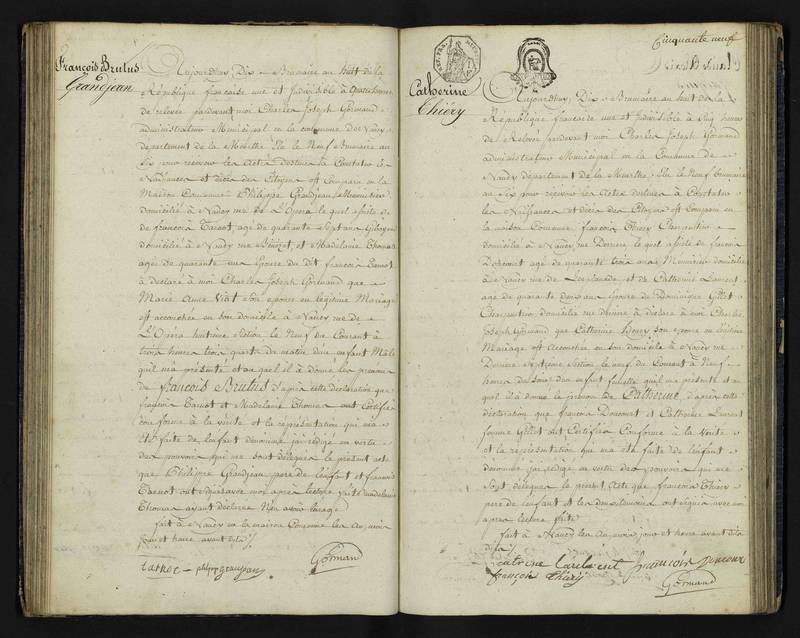 François Brutus
Grandjean
Aujourdhuy Dix Brumaire an huit de la
République française une et Indivisible à quatre heures
de relevée pardevant moi Charles Joseph Gormand
administrateur Municipal en la commune de Nancy
département de la Meurthe Elu le Neuf Brumaire an
Six pour recevoir les Actes destinés à Constater les
Naissances et décès des Citoyens est Comparu en la
Maison Commune Philippe Grandjean Menuisier
domicilié à Nancy rue de L'Opera lequel assisté de
de françois Tarnot, age de quarante Sept ans
domicilié à Nancy rue et Madelaine Thomas
agée de quarante ans Epouse du Dit françois Tarnot
à déclaré à moi Charles Joseph Gormand que
Marie Anne son épouse en légitime Mariage
est accouchée en son domicile à Nancy rue de
L'Opéra huitième Section le Neuf du Courant à
trois heures trois quarts du matin d'un enfant Mâle
qu'il m'a présenté et auquel il à donné les prénoms
de François Brutus d'après cette déclaration que
françois Tarnot et Madelaine Thomas ont Certifiée
conforme à la vérité et la représentation qui m'a
été faite de lenfant dénommé jai rédigé en vertu
des pouvoirs qui me sont délégués le présent acte
que Philippe Grandjean pere de lenfant et françois
Tarnot ont signé avec moi après lecture faite Madelaine
Thomas ayant déclaré n'en avoir lusage
fait à Nancy en la maison Commune les an, mois
jour et heure avant dits /.
Gormand
Cinquante neuf
Catherine
Thiéry
Aujourdhuy, Dix Brumaire an huit de la
République francaise une et indivisible à Cinq heures
de Relevée pardevant moi Charles Joseph Gormand
administrateur Municipal en la Commune de
Nancy département de la Meurthe Elu le neuf Brumaire
an Six pour recevoir les Actes destinés à Constater
les Naissances et décès des Citoyens est Comparu en
la maison Commune françois Thiery Charpentier
domicilié à Nancy rue Derriere lequel assisté de françois
agé de quarante trois ans Menuisier domicilié
à Nancy rue de et de Catherine Laurent
agée de quarante deux ans Epouse de Dominique Gillet
Charpentier domiciliée rue à déclaré à moi Charles
Joseph Gormand que Catherine son epouse en légitime
Mariage est Accouchée en son domicile à Nancy rue
Derriere Section le neuf du Courant à Neuf
heures du Soir d'un enfant femelle quil m'a présenté et au
quel il à donné le prénom de Catherine, d'après cette
déclaration que françois et Catherine Laurent
femme Gillet ont Certifiée Conforme à la Vérité
et la représentation qui ma été faite de lenfant
dénommé jai rédigé en vertu des pouvoirs qui me
Sont délégués le présent Acte que francois Thiery
pere de lenfant et les deux témoins ont signé avec moi
apres lecture faite
fait à Nancy les An, mois jour et heure avant dits
françois Thiéry
Gormand